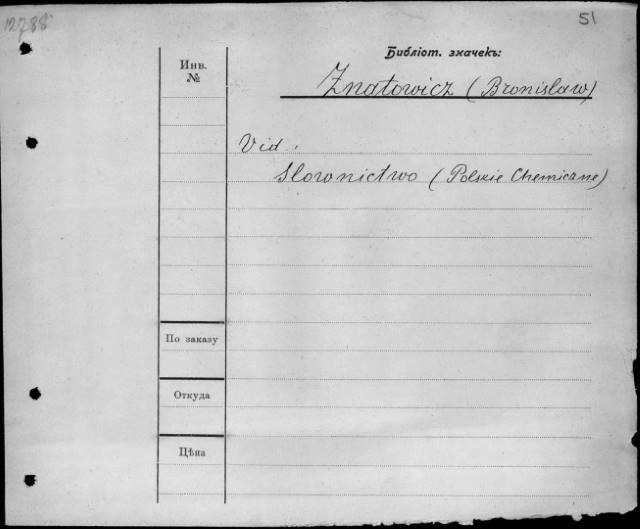 12788
51
Библіот. значекъ:
Инв.
№
Znatowicz (Bronislaw)
Vid.
Slownictwo (Polskie Chemiczne)
По заказу
Откуда
Цѣна